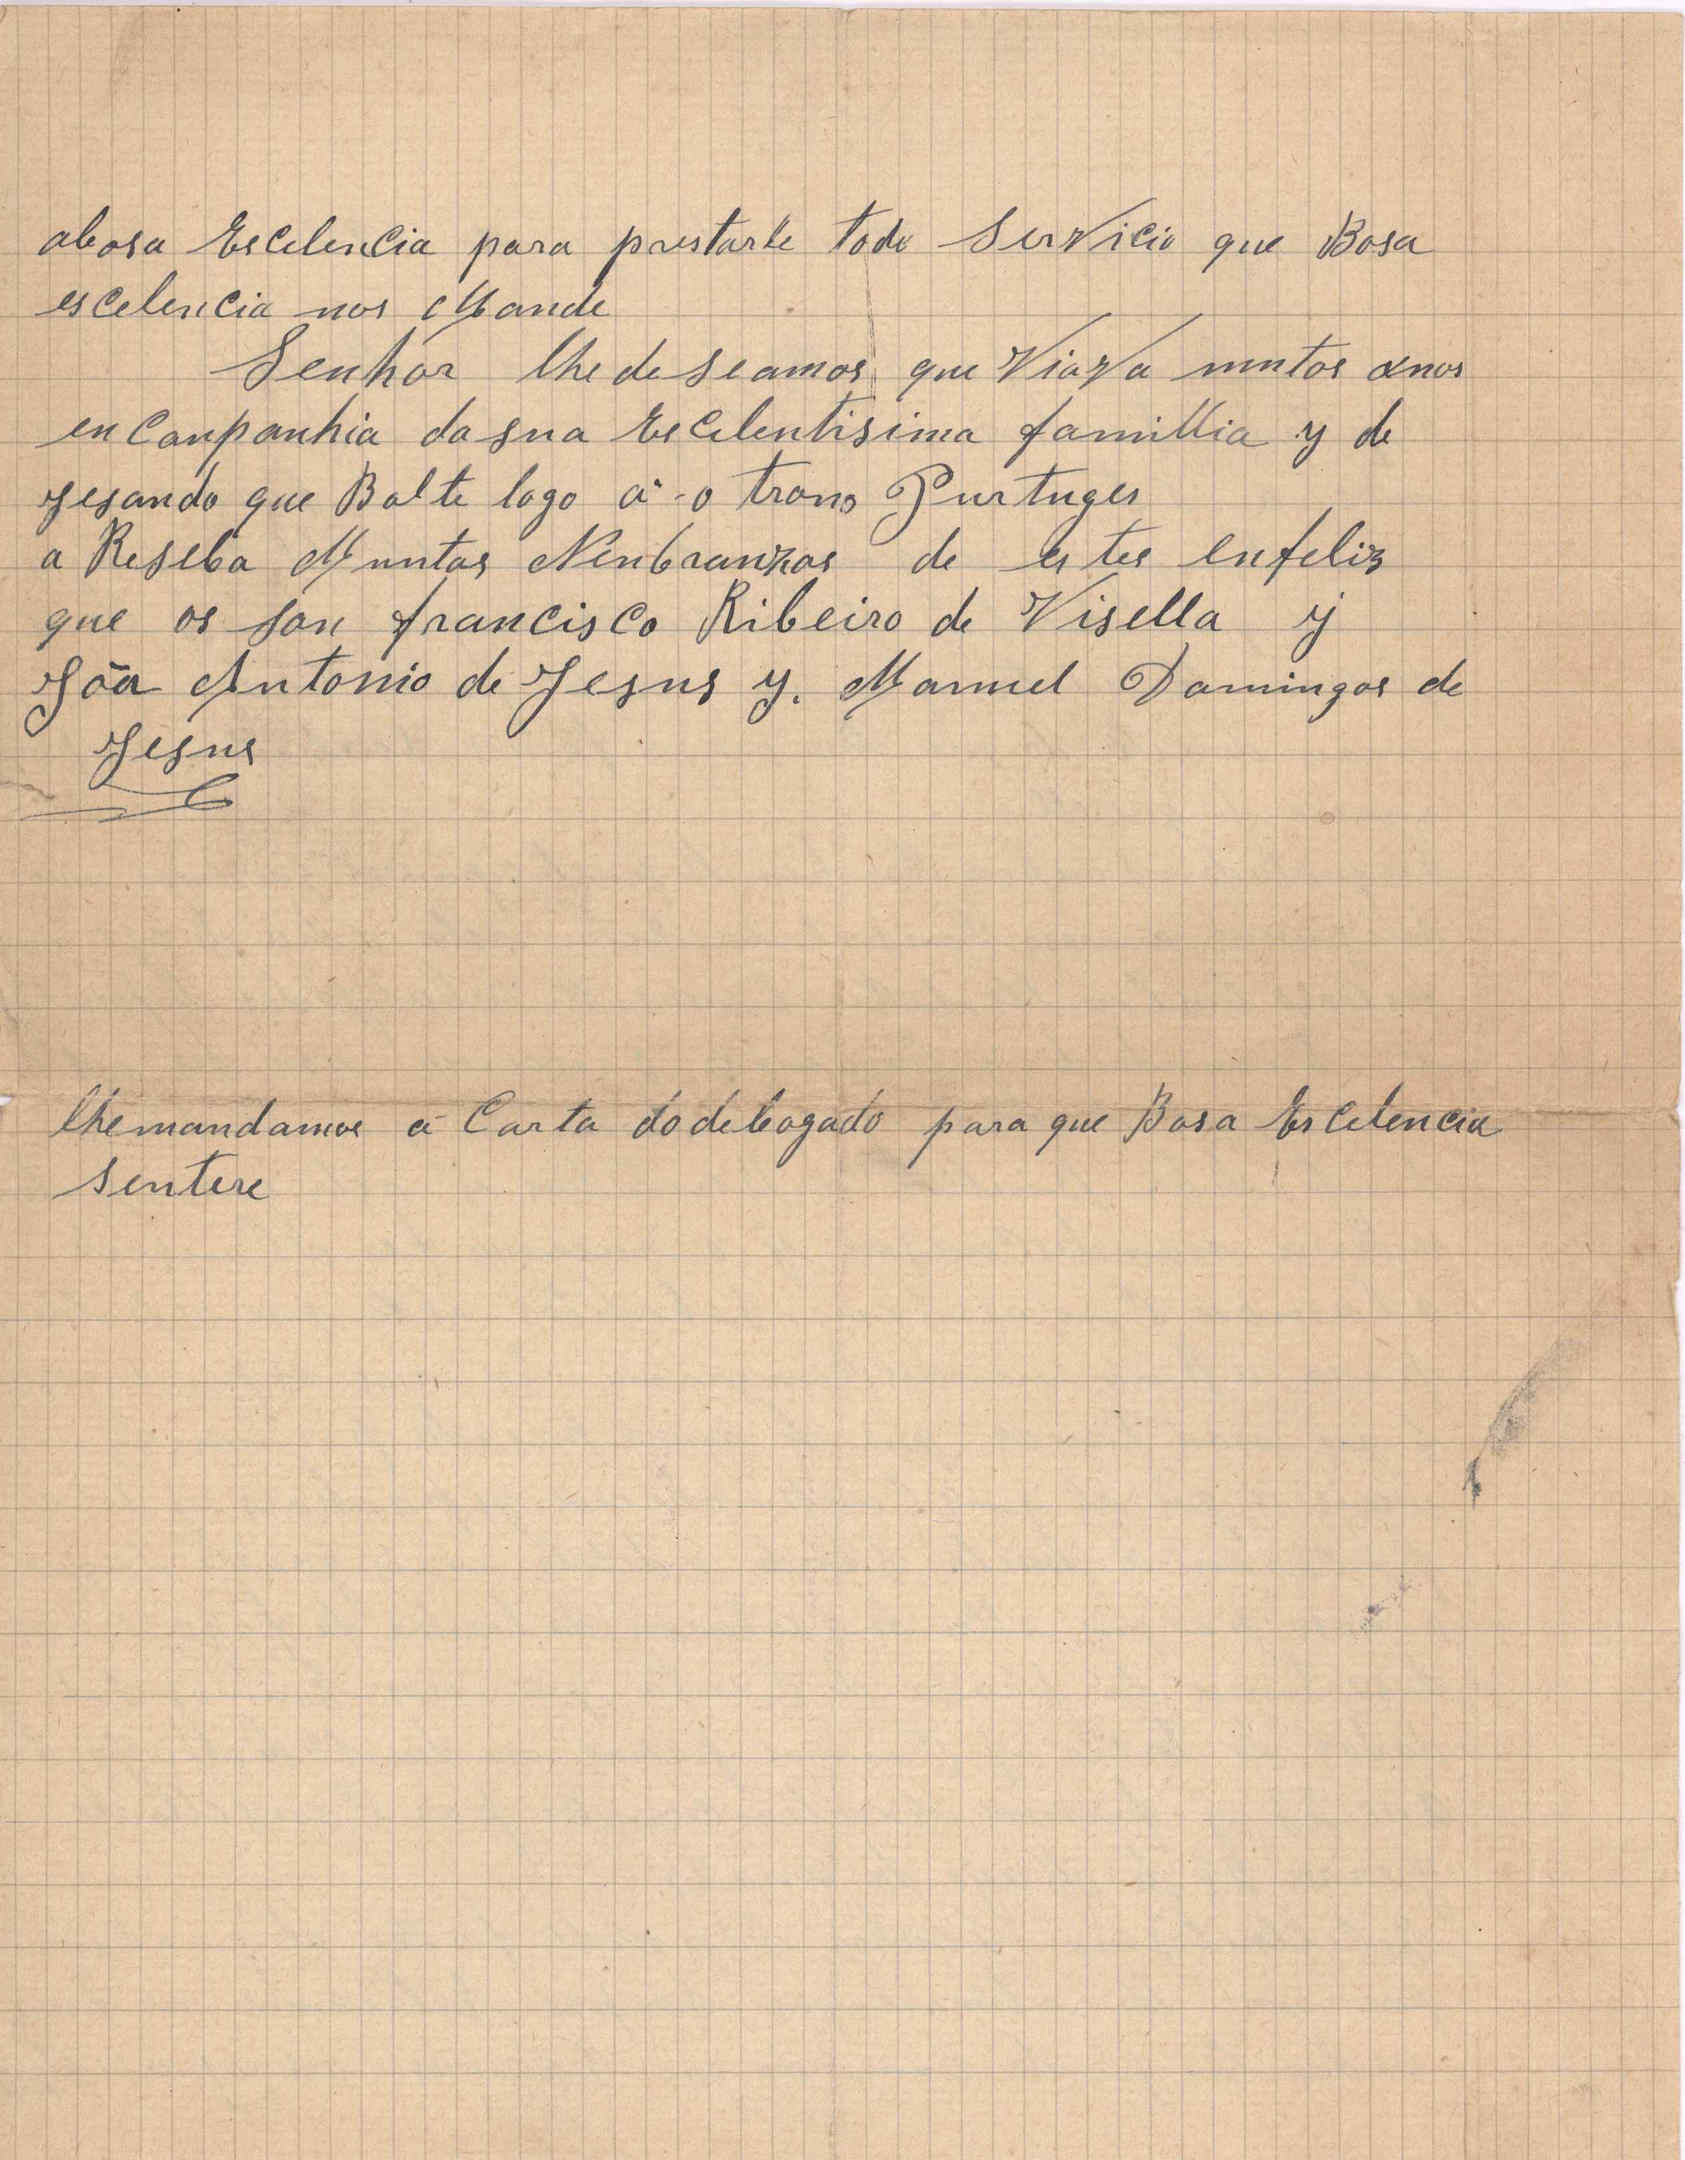 abosa Escelencia para prestarle todo Servicio que Bosa
escelencia nos Mande
Senhor lhe deseamos que ViaVa muntos anos
en Conpanhia dasua Escelentisima famillia y de
Jesando que Bolte logo á o trono Purtuges
a Reseba Muntas Nenbranzas de estes enfeliz
que os son francisco Ribeiro de Visella y
Jõa Antonio de Jesus y. Manuel Domingos de
Jesus
lhemandamos a Carta dodebogado para que Bosa Escelencia
sentere